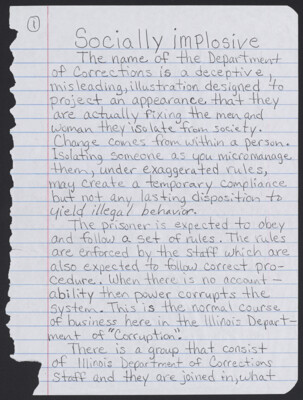 1
Socially implosive
The name of the Department
of Corrections is a deceptive,
misleading, illustration designed to
project an appearance that they
are actually fixing the men and
woman they isolate from society.
Change comes from within a person.
Isolating someone as you micromanage
them, under exaggerated rules,
may create a temporary compliance
but not any lasting disposition to
yield illegal behavior.
The prisoner is expected to obey
and follow a set of rules. The rules
are enforced by the staff which are
also expected to follow correct pro-
cedure. When there is no account-
ability then power corrupts the
system. This is the normal course
of business here in the Illinois Depart-
ment of "Corruption".
There is a group that consist
of Illinois Department of Corrections
Staff and they are joined in, what